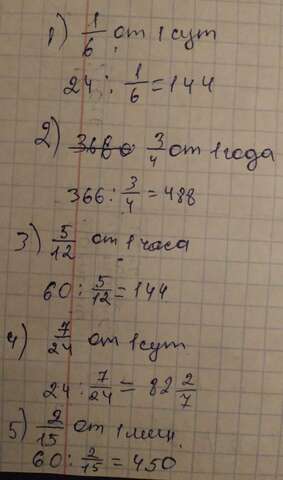 1) 1/6 от 1 сут
24 : 1/6 = 144
2) 3/4 от 1 года
366 : 3/4 = 488
3) 5/12 от 1 часа
60 : 5/12 = 144
4) 7/24 от 1 сут
24 : 7/24 = 82 2/7
5) 2/15 от 1 мин.
60 : 2/15 = 450